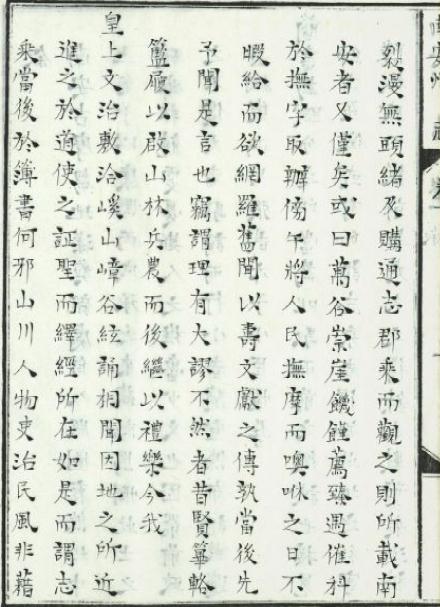 裂漫無頭緒及購通志郡乘而觀之則所載南
安者又僅矣或曰萬谷崇崖饑饉薦臻遇催科
於撫字取辦傍午將人民撫摩而噢咻之日不
暇給而欲網羅舊聞以壽文獻之傳孰當後先
予聞是言也竊謂理有大謬不然者昔賢篳輅
籃屨以啟山林兵農而後繼以禮樂今我
皇上文治敷洽嶰山嶂谷絃誦相聞因地之所近
進之於道使之証聖而繹經所在如是而謂志
乘當後於簿書何邪山川人物吏治民風非藉